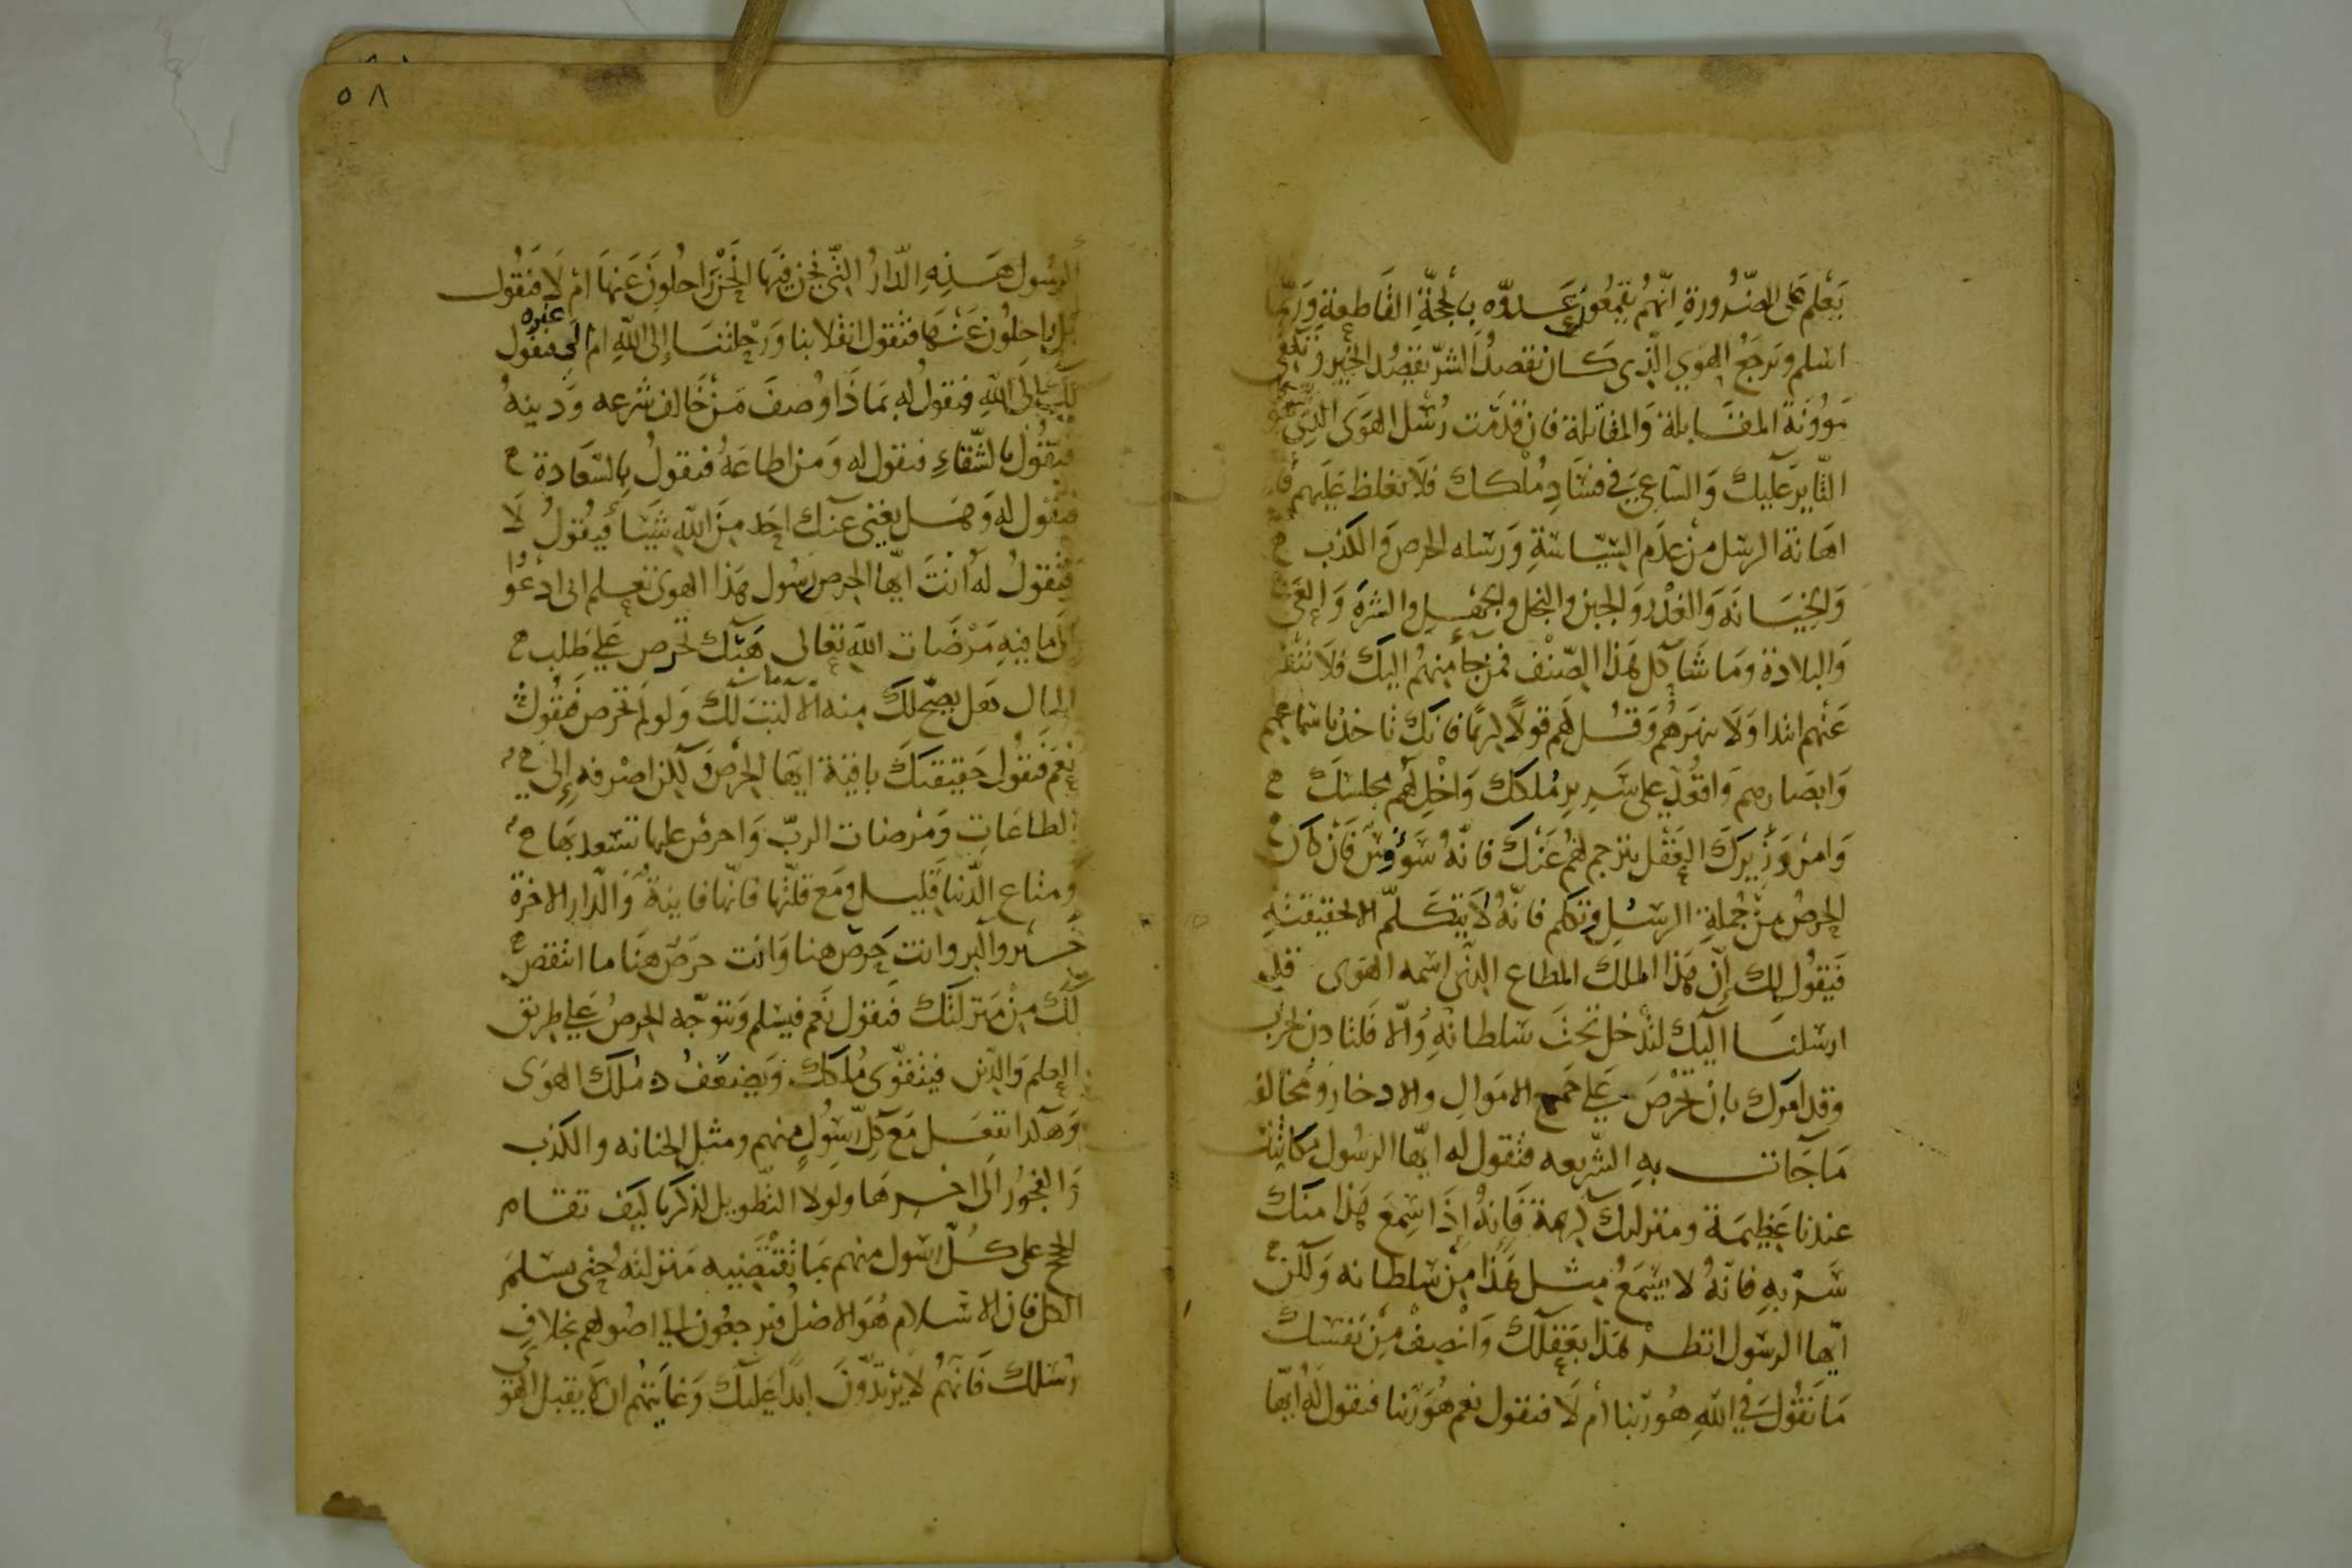 يَعْلم على الضّرورة انّهم يقمعون عدوّه بالحجّة القاطعة وربّما
اسلم وترجع الهوى الّذي كان يقصد الشرّ يقصد الخير وتكفى
مؤونة المقابلة والمقاتلة فان قدمت رسل الهوى الذي هو
الثاير عليك والساعي في فساد ملكك فلا تغلظ عليهم فان
اهانة الرسل من عدم السياسة ورسله الحرص والكذب
والخيانة والغدر والجبن والبخل والجهل والشره والعي
والبلادة وما شاكل هذا الصنف فمن جا منهم اليك فلا تنفر
عنهم ابدا ولا تنهرهم وقل لهم قولا كريما فانك تاخذ باسماعهم
وابصارهم واقعد على سرير ملكك واخل لهم مجلسك
وامر وزيرك العقل يترجم لهم عنك فانه سؤوس فان كان
الحرص من جملة الرسل وتكلم فانه لا يتكلم الا بحقيقته
فيقول لك إن هذا الملك المطاع الذي اسمه الهوى قد
ارسلنا اليك لتدخل تحت سلطانه والّا فلتاذن بحرب
وقد امرك بان تحرص على جمع الاموال والادخار ومخالفة
ما جات به الشريعه فتقول له ايها الرسول مكانتك
عندنا عظيمة ومنزلتك كريمة فانه إذا سمع هذا منك
سرّ به فانه لا يسمع مثل هذا من سلطانه ولكن
ايها الرسول انظر هذا بعقلك وانصف من نفسك
ما تقول في الله هو ربنا أم لا فيقول نعم هو ربنا فتقول له ايها
٥٨
الرسول هذه الدار التي نحن فيها انحن راحلون عنها ام لا فيقول
بل راحلون عنها فتقول انقلابنا ورحلتنا إلى الله ام الى غيره فيقول
بل الى الله فتقول له بماذا وصف من خالف شرعه ودينه
فيقول بالشقاء فتقول له ومن اطاعه فيقول بالسعادة
فتقول له وهل يغني عنك احد من الله شيئا فيقول لا
فتقول له أنت ايها الحرص رسول هذا الهوى تعلم اني ادعوا
الى ما فيه مرضات الله تعالى هبك تحرص على طلب
المال هل يصح لك منه الا ما ثبت لك ولو لم تحرص فيقول
نعم فتقول حقيقتك باقية ايها الحرص ولكن اصرفه إلى
الطاعات ومرضات الرب واحرص عليها تسعد بها
ومتاع الدنيا قليل ومع قلتها فانها فانية والدار الاخرة
خير وابر وانت حرص هنا وانت حرص هنا ما انتقص
لك من منزلتك فيقول نعم فيسلم ويتوجه الحرص على طريق
العلم والدين فيتقوى ملكك ويضعف ملك الهوى
وهكذا تفعل مع كل رسول منهم ومثل الخيانه والكذب
والفجور الى اخرها ولولا التطويل لذكرنا كيف تقام
الحجج على كل رسول منهم بما تقتضيه منزلته حتى يسلم
الكل فان الاسلام هو الاصل فيرجعون الى اصولهم بخلاف
رسلك فانهم لا يرتدون ابدا عليك وغايتهم ان لا يقبل الهوى